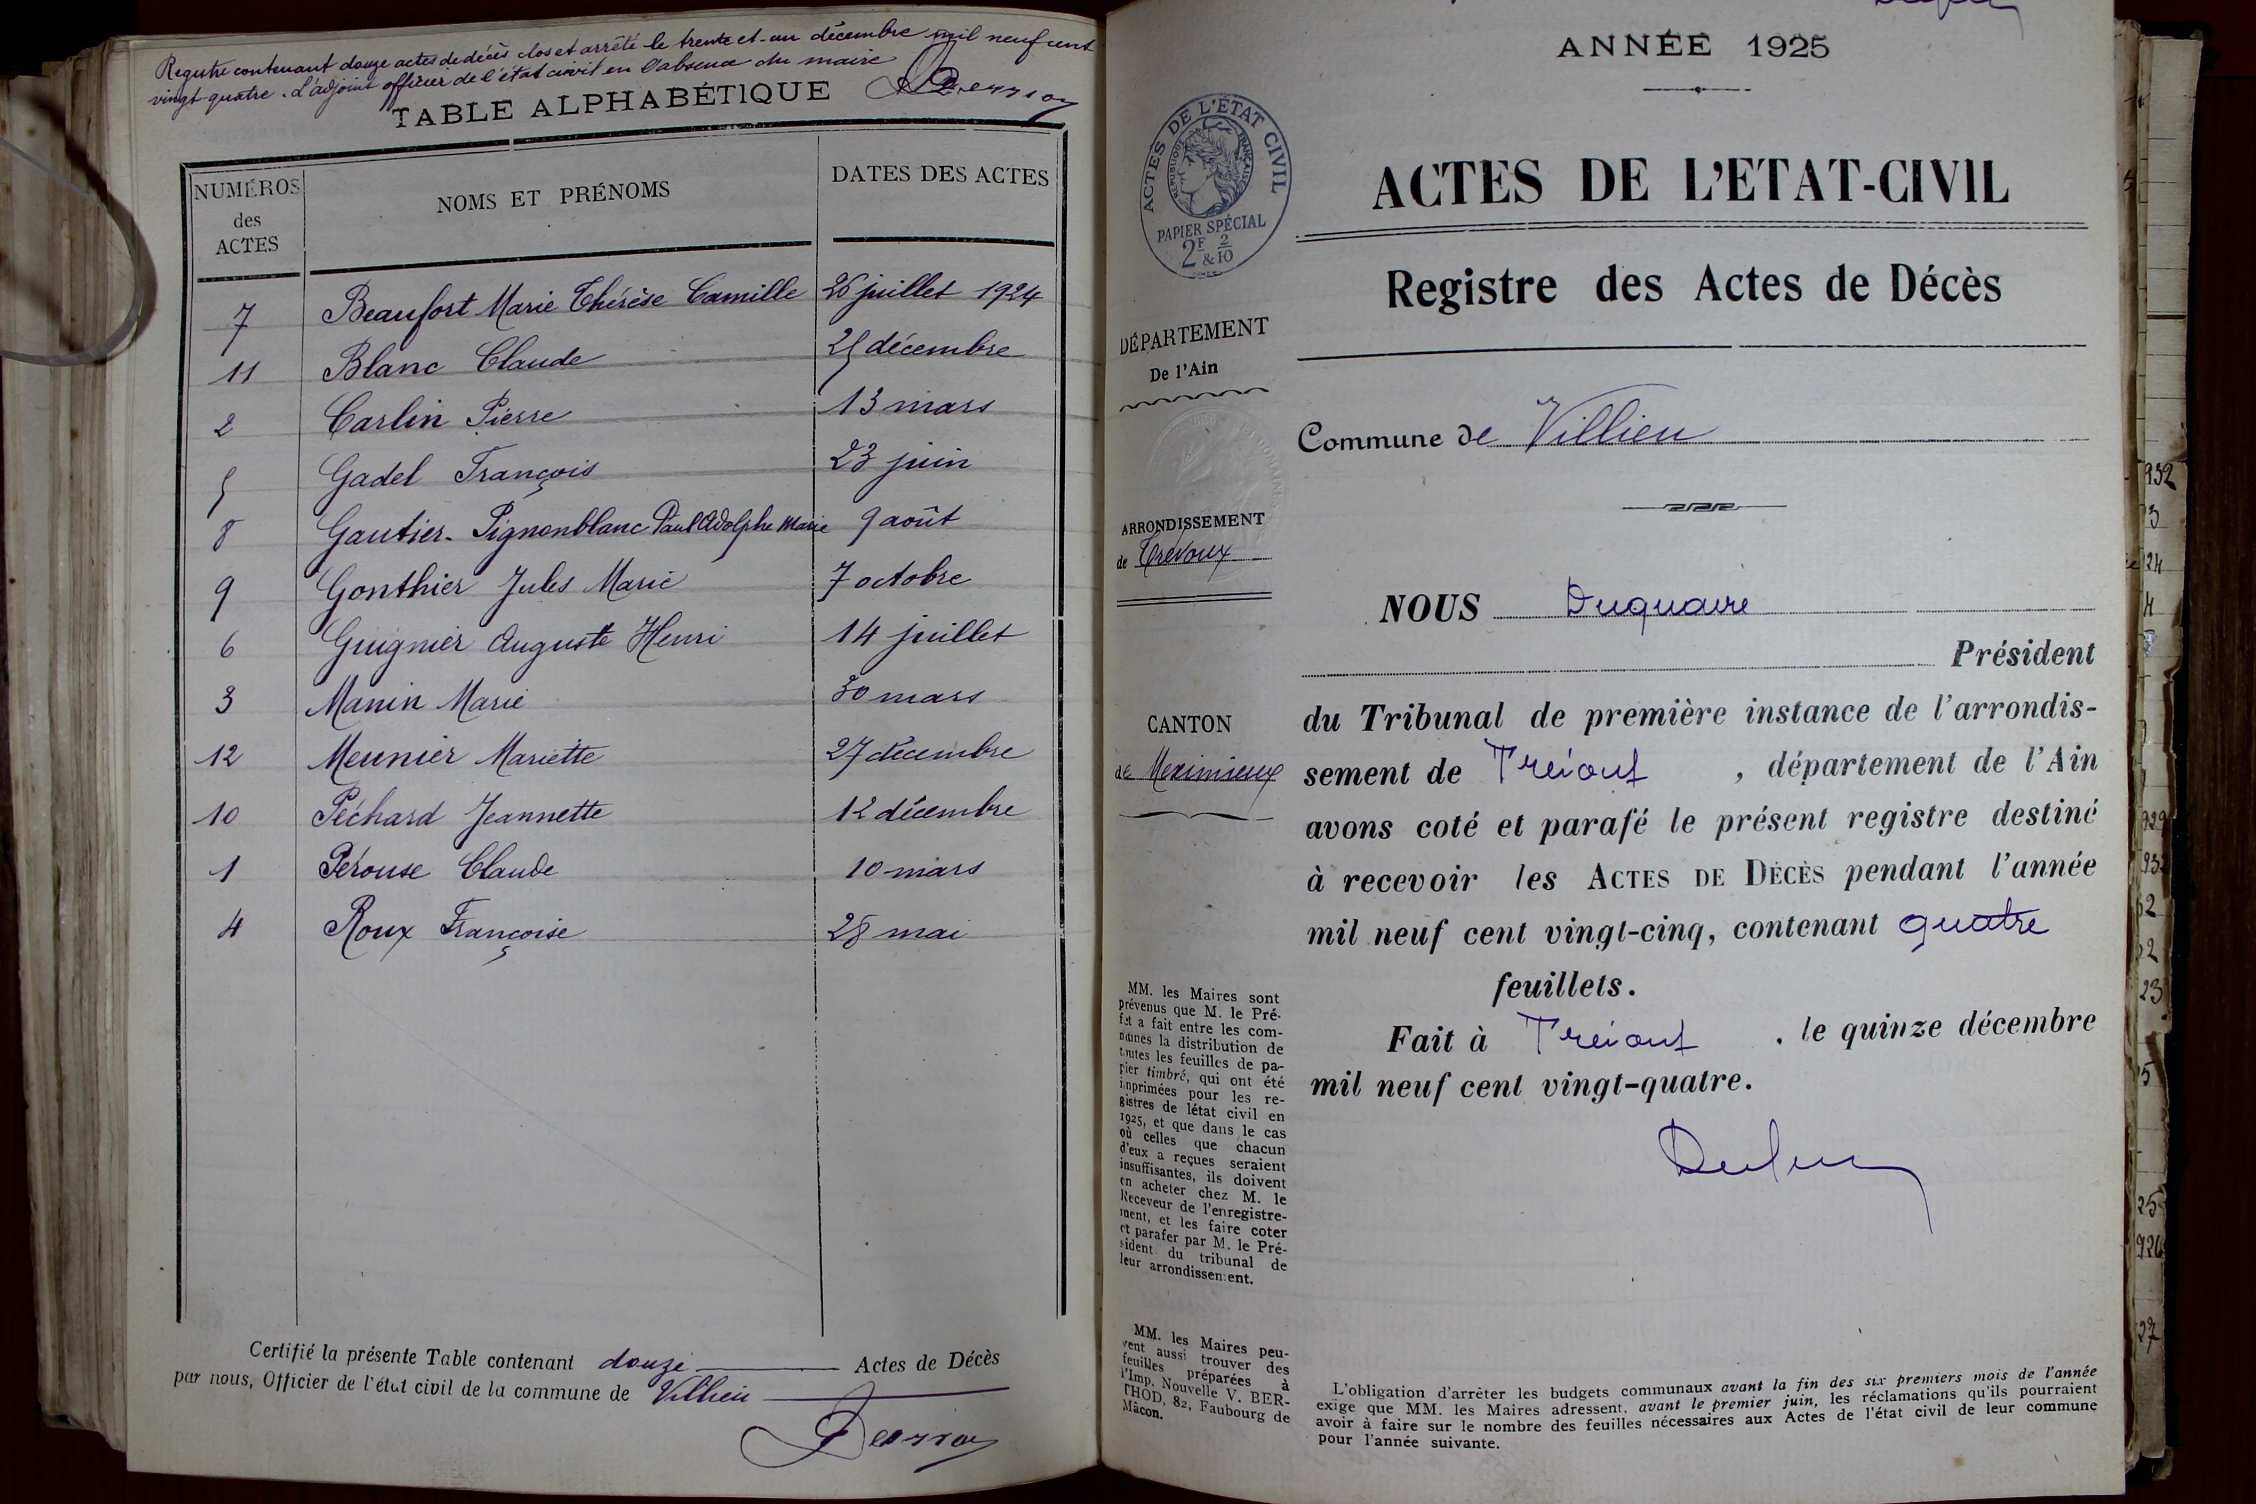 Registre contenant douze actes de décès clos et arrêté le trente et un décembre mil neuf cent
vingt quatre. L'adjoint officier de l'état civil en l'absence du maire
TABLE ALPHABÉTIQUE
NUMÉROS
des
ACTES
NOMS ET PRÉNOMS
DATES DES ACTES
7 Beaufort Marie Thérèse Camille 26 juillet 1924
11 Blanc Claude 25 décembre
2 Carlin Pierre 13 mars
5 Gadel François 23 juin
8 Gautier-Pignonblanc Paul Adolphe Marie 9 août
9 Gonthier Jules Marie 7 octobre
6 Guignier Auguste Henri 14 juillet
3 Manin Marie 30 mars
12 Meunier Mariette 27 décembre
10 Péchard Jeannette 12 décembre
1 Pérouse Claude 10 mars
4 Roux Françoise 28 mai
Certifié la présente Table contenant douze Actes de Décès
par nous, Officier de l'état civil de la commune de Villieu
ANNÉE 1925
ACTES DE L'ÉTAT CIVIL
RÉPUBLIQUE FRANÇAISE
PAPIER SPÉCIAL
2F & 2/10
ACTES DE L'ETAT-CIVIL
Registre des Actes de Décès
DÉPARTEMENT
De l'Ain
Commune de Villieu
ARRONDISSEMENT
de Trévoux
CANTON
de Meximieux
NOUS Duquaire
Président
du Tribunal de première instance de l'arrondis-
sement de Trévoux, département de l'Ain
avons coté et parafé le présent registre destiné
à recevoir les ACTES DE DÉCÈS pendant l'année
mil neuf cent vingt-cinq, contenant quatre
feuillets.
Fait à Trévoux, le quinze décembre
mil neuf cent vingt-quatre.
MM. les Maires sont
prévenus que M. le Pré-
fet a fait entre les com-
munes la distribution de
toutes les feuilles de pa-
pier timbré, qui ont été
imprimées pour les re-
gistres de létat civil en
1925, et que dans le cas
où celles que chacun
d'eux a reçues seraient
insuffisantes, ils doivent
en acheter chez M. le
Receveur de l'enregistre-
ment, et les faire coter
et parafer par M. le Pré-
sident du tribunal de
leur arrondissement.
MM. les Maires peu-
vent aussi trouver des
feuilles préparées à
l'Imp. Nouvelle V. BER-
THOD, 82, Faubourg de
Mâcon.
L'obligation d'arrêter les budgets communaux avant la fin des six premiers mois de l'année
exige que MM. les Maires adressent, avant le premier juin, les réclamations qu'ils pourraient
avoir à faire sur le nombre des feuilles nécessaires aux Actes de l'état civil de leur commune
pour l'année suivante.